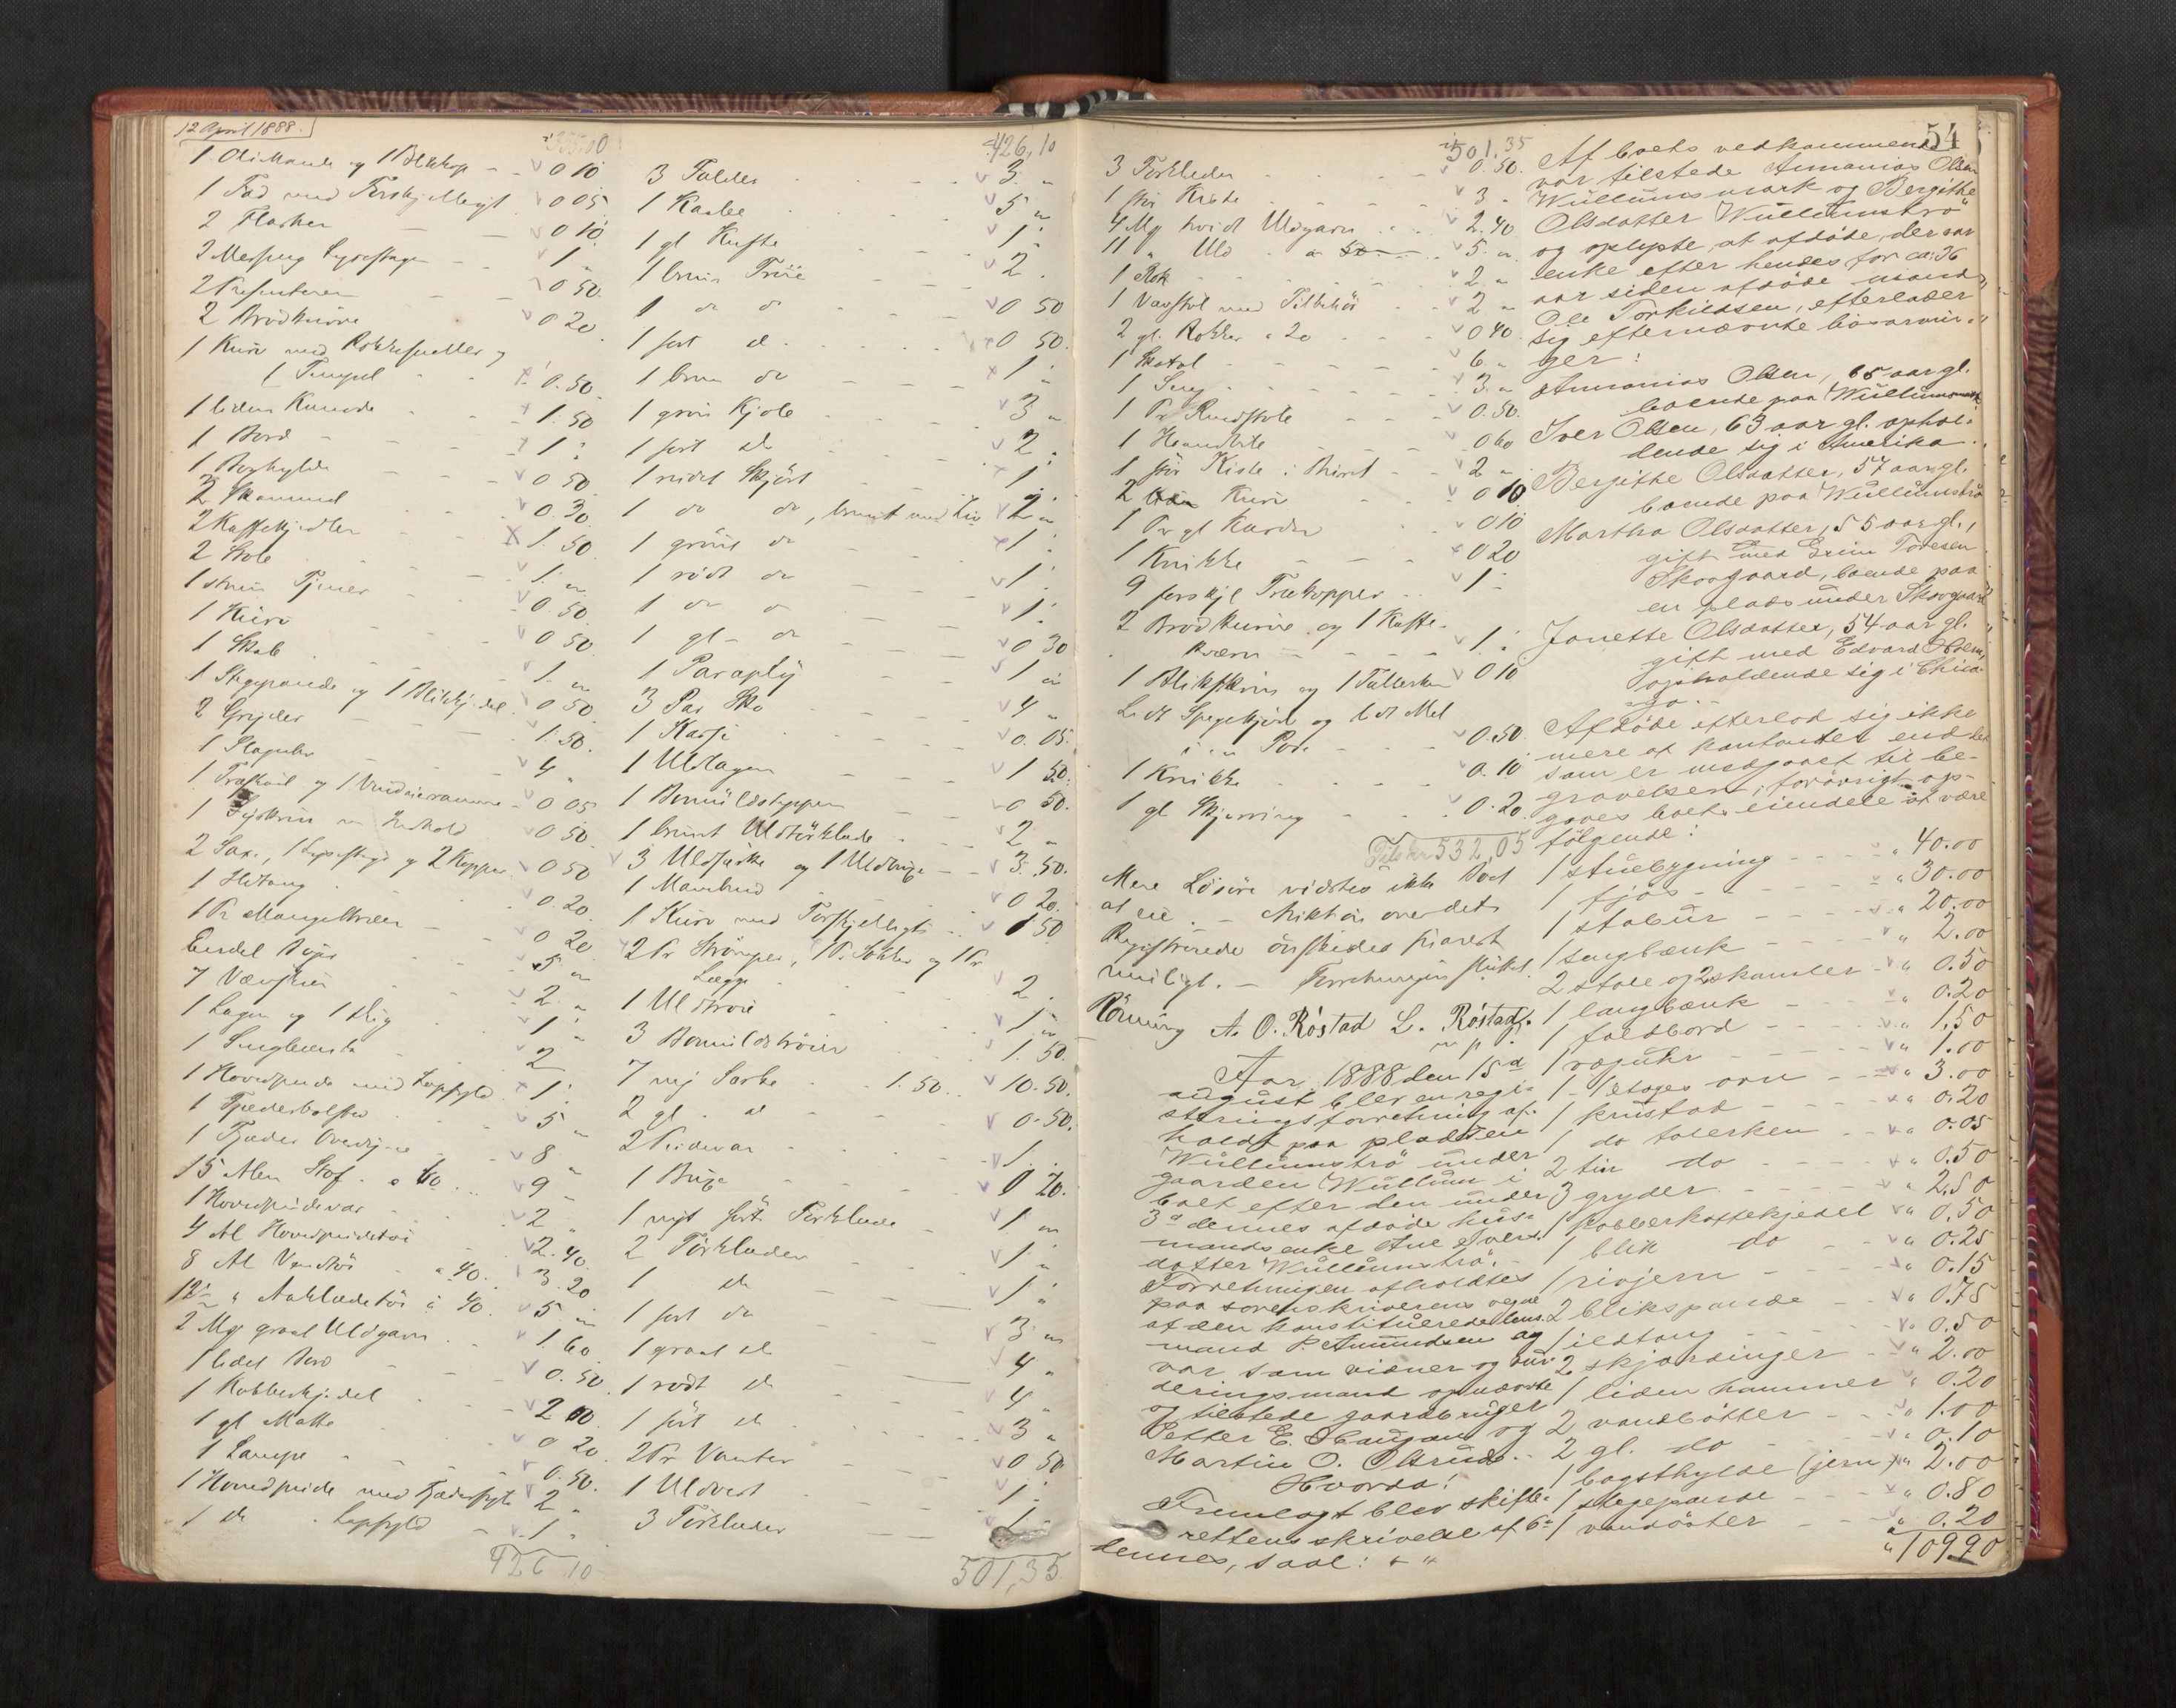 12 April 1888.
355.00
1 Oliekande og 1 Blikkop - - 0 10
1 Fad med Forskjelligt 0 05
2 Flasker - - 0 10
2 Messing Lysestager - - 1 "
2 Presenterer - - 0 50.
2 Brødkurve 0 20
1 Kurv med Rokkesneller og
1 Tempel - - 0.50.
1 liden Komode - 1.50
1 Bord - - 1 "
1 Boghylde - - 0 50
2 Skammel 0.30
2 Kaffekjedler 1.50
2 Stole 1. "
1 Tiner 0.50
1 Kurv 0 50
1 Skab 1. "
1 Stegepande og 1 Blikkjedel 0 50
2 Gryder - - 1.50.
1 Slaguhr - - 4 "
1 og 1 Vinduesramme - 0 05
1 Syskrin m Indhold 0 50
2 Saxe, 1 Lysestage og 2 Kopper 0 50
1 Ildtang 0.20.
1 Pr 0 20
Endel 5 "
7 Vævskeer 2 "
1 Lagen og 1 1 "
1 Sengbænk 2
1 Hovedpude med Lapfyld 1 "
1 Fjederbolster 5 "
1 Fjeder Overdyne 8 "
15 Alen Stof a 60 9 "
1 Hovedpudevar 2 "
4 Al Hovedpudetøi 2.40.
8 Al a 40. 3.20
12½ " Aaklædetøi à 40. 5 "
2 Mg graat Uldgarn 1.60
1 lidet Bord 0.50
1 Kobberkjedel 2 00
1 gl Matte 0 20
1 Lampe 0.50.
1 Hovedpude med Fjederfyld 2 "
1 do - Lapfyld 1 "
426.10
426,10
3 Falder 3. "
1 Kaabe 5 "
1 gl Kufte 1 "
1 brun Trøie 2.
1 do do 0 50
1 sort do 0 50.
1 brun do 1 "
1 grøn Kjole 3 "
1 sort do 2 "
1 Skjørt 1
1 do do, brunt med Liv 2 "
1 grønt do 1 "
1 rødt do 1 "
1 do do 1 "
1 gl - do 0 30
1 Paraply 1 "
3 Par Sko 4 "
1 0.05.
1 Uldlagen 1 50.
1 Bomuldstæppe 0 50.
1 brunt Uldtørklæde 2 "
3 og 1 3.50.
1 0 20.
1 Kurv med Forskjelligt 1 50
2 Pr Strømper, 1 Pr. Sokker og 1 Pr
Lægge 2.
1 Uldtrøie 1 "
3 Bomuldstrøier 1.50.
7 nye Særke 1.50. 10.50.
2 gl. do 0.50.
2 Pudevar 1.
1 Buxe 0 20.
1 nyt sort Tørklæde 1 "
2 Tørklæder 1 "
1 do 1 "
1 sort do 3 "
1 graat do 4 "
1 rødt do 4 "
1 sort do 3 "
2 Pr Vanter 0 50
1 Uldvest 1 "
3 Tørklæder 1 "
501,35
501.35
3 Tørklæder 0.50.
1 stor Kiste 3 "
4 Mg hvidt Uldgarn 2.40
11 " Uld 5. "
1 Rok 2 "
1 Vævstol med Tilbehør 2 "
2 gl. Rokker a 20 0 40
1 Skatol 6 "
1 Seng 3 "
1 Pr 0.50.
1 0 60
1 stor Kiste i Buret 2 "
2 Kurve 0 10
1 Pr gl Karder 0 10
1 Krukke 0 20
9 forskjl Trækopper 1 "
2 Brødkurve og 1 Kaffe-
kværn 1 "
1 Blikskrin og 1 Tallerken 0 10
Lidt Spegekjød og lidt Mel
i en Pose 0.50
1 Krukke 0.10
1 gl Skjæring 0.20.
Tils kr 532,05
Mere Løsøre vidstes ikke Boet
at eie. - Auktion over det
Registrerede ønskedes snarest
muligt. - Forretningen sluttet.
Rönning A. O. Röstad L. Röstad.
m. p. P.
Aar 1888 den 15de
august blev en regi-
streringsforretning af-
holdt paa pladsen
Wüllumstrø under
gaarden Wullum i
boet efter den under
3die dennes afdøde hus-
mandsenke Ane Iversd.
datter Wullumstrø.
Forretningen afholdtes
paa sorenskriverens vegne
af den konstituerede lens-
mand P. Amundsen og
var som vidner og vur-
deringsmænd opnævnte
og tilstede gaardbruger
Petter E. Haugan og
Martin O. Olstrud.
Hvorda!
Fremlagt blev skifte-
rettens skrivelse af 6te
dennes, saal: + "
54
Af boets vedkommende
var tilstede Ananias Olsen
Wullumsmark og Bergithe
Olsdatter Wullumstrø
og oplyste, at afdøde, der var
enke efter hendes for ca: 36
aar siden afdøde mand
Ole Torkildsen, efterlader
sig efternævnte livsarvin-
ger:
Annanias Olsen, 65 aar gl.
boende paa Wullumsmark
Iver Olsen, 63 aar gl. ophol-
dende sig i Amerika.
Bergithe Olsdatter, 57 aar gl.
boende paa Wullumstrø
Martha Olsdatter, 55 aar gl.,
gift med Grim Toresen
Skovgaard, boende paa
en plads under Skovgaard
Janette Olsdatter, 54 aar gl.
gift med Edvard Holm,
opholdende sig i Chica-
go.
Afdøde efterlod sig ikke
mere af kontanter end det
som er medgaaet til be-
gravelsen, forøvrigt op-
gaves boets eiendele at være
følgende:
1 stuebygning - - " 40.00
1 fjøs - - " 30.00
1 stabur - - " 20.00
1 sengbænk - - " 2.00
2 stole og 2 skamler - " 0.50
1 langbænk - - " 0.20
1 foldbord - - " 1.50
1 væguhr - - " 1.00
1 - 1 etages ovn - - " 3.00
1 krusfad - - " 0.20
1 do talerken - - " 0.05
2 tin do - - " 0.50
3 gryder - - " 2.50
1 kobberkaffekjedel " 0.50
1 blik do - - " 0.25
1 rivjern - - " 0.15
2 blikspande - - " 0.75
1 ildtang - - " 0.50
2 skjæringer - - " 2.00
1 liden hammer " 0.20
2 vandbøtter - - " 1.00
2 gl. do - - " 0.10
1 bagsthylde (jern) " 2.00
1 stegepande - - " 0.80
1 vandøster - - " 0.20
" 109.90